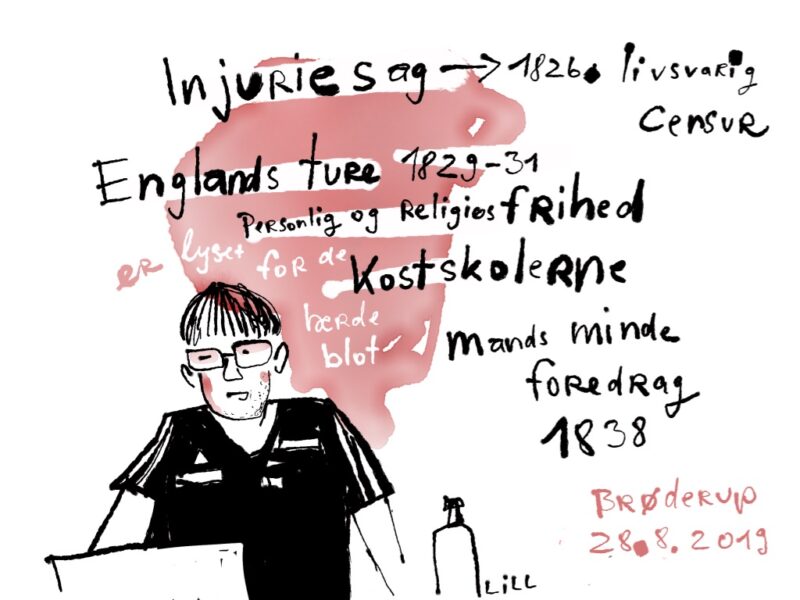 Injuriesag → 1826. livsvarig
censur
Englands ture 1829-31
Personlig og Religiøs frihed
er lyset for de
Kostskolerne
lærde
blot
mands minde
foredrag
1838
Brøderup
28.8.2019
LiLL